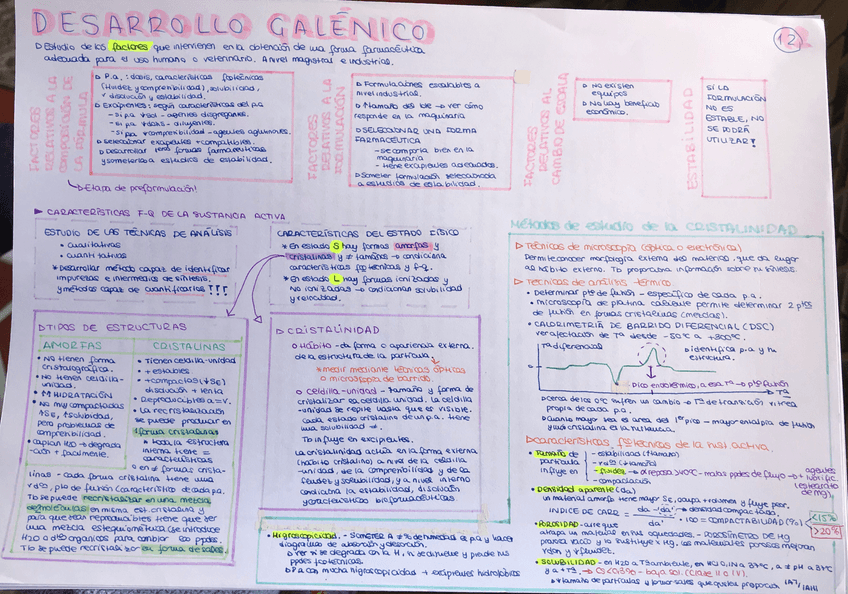 DESARROLLO GALÉNICO
12
▷ Estudio de los factores que intervienen en la obtención de una forma farmacéutica
adecuada para el uso humano o veterinario. A nivel magistral e industrial.
FACTORES
RELATIVOS A LA
COMPOSICIÓN DE
LA FÓRMULA
▷ P.a.: dosis, características fcotécnicas
(fluidez y comprensibilidad), solubilidad,
disolución y estabilidad.
▷ Excipientes: según características del p.a.
- si p.a. ↓sol - agentes disgregantes.
- si p.a. ↓dosis - diluyentes.
- si p.a. ↓comprensibilidad - agentes aglutinantes.
▷ Seleccionar excipientes + compatibles.
▷ Desarrollar formas farmacéuticas
y someterlo a estudios de estabilidad.
↳ Etapa de preformulación!
FACTORES
RELATIVOS A LA
FORMULACIÓN
▷ Formulaciones escalables a
nivel industrial.
▷ ↑tamaño del lote → ver cómo
responde en la maquinaria
▷ SELECCIONAR UNA FORMA
FARMACÉUTICA
- se comporta bien en la
maquinaria
- tiene excipientes adecuados.
▷ Someter formulación seleccionada
a estudios de estabilidad.
FACTORES
RELATIVOS AL
CAMBIO DE ESCALA
▷ No existen
equipos
▷ No hay beneficio
económico.
ESTABILIDAD
SI LA
FORMULACIÓN
NO ES
ESTABLE, NO
SE PODRÁ
UTILIZAR!
▶ CARACTERÍSTICAS F-Q DE LA SUSTANCIA ACTIVA
ESTUDIO DE LAS TÉCNICAS DE ANÁLISIS
• cualitativas
• cuantitativas
* Desarrollar método capaz de identificar
impurezas e intermedios de síntesis,
y métodos capaz de cuantificarlos !!!
CARACTERÍSTICAS DEL ESTADO FÍSICO
* En estado S hay formas amorfas y
cristalinas y ≠ tamaños → condiciona
características fcotécnicas y f-q.
* En estado L hay formas ionizadas y
no ionizadas → condicionan solubilidad
y velocidad.
▷ TIPOS DE ESTRUCTURAS
AMORFAS
• No tienen forma
cristalográfica.
• No tienen celdilla-
unidad.
• M HIDRATACIÓN
• No muy compactadas
↑SE, ↑solubilidad,
pero problemas de
comprensibilidad.
• captan H2O → degrada
ción + fácilmente.
CRISTALINAS
• Tienen celdilla-unidad
• + estables
• + compactas (↓SE)
disolución + lenta
• Reproducibles a = v.
• La recristalización
se puede producir en
≠ formas cristalinas
• toda la estructura
interna tiene =
características
• en ≠ formas crista-
linas - cada forma cristalina tiene una
vdis, pto de fusión (característico de cada pa.
Tb se puede recristalizar en una mezcla
en misma est. cristalina y
para que sean reproducibles tiene que ser
una mezcla estequiométrica (se introduce
H2O o dtos orgánicos para cambiar las ppdes.
Tb se puede recristalizar su forma de sales.
▷ CRISTALINIDAD
○ Hábito - da forma o apariencia externa
de la estructura de la partícula.
* medir mediante técnicas ópticas
o microscopía de barrido.
○ Celdilla-unidad - tamaño y forma de
cristalizar de celdilla unidad. La celdilla
-unidad se repite hasta que es visible.
Cada estado cristalino de un p.a. tiene
una solubilidad ≠.
Tb influye en excipientes.
La cristalinidad actúa en la forma externa
(hábito cristalino) a nivel de la celdilla
-unidad, de la comprensibilidad y de la
fluidez y solubilidad, y a nivel interno
condiciona la estabilidad, disolución
y características biofarmacéuticas
• Higroscopicidad - SOMETER A ≠ % de humedad el p.a y hacer
diagrama de absorción y desorción.
▷ ver si se degrada con la H, si se disuelve y pierde sus
ppdes fcotécnicas.
▷ P.a con mucha higroscopicidad → excipientes hidrofóbicos
Métodos de estudio de la CRISTALINIDAD
▷ Técnicas de microscopía (óptica o electrónica)
Permite conocer morfología externa del material que da lugar
al hábito externo. Tb proporciona información sobre su síntesis.
▷ Técnicas de análisis térmico.
• Determinar pto de fusión - específico de cada p.a.
• microscopía de platina caliente permite determinar 2 ptos
de fusión en formas cristalinas (mezclas).
• CALORIMETRÍA DE BARRIDO DIFERENCIAL (DSC)
ver afectación de Tª desde -50°C a +300°C.
Tª diferencial
▷ identifica p.a y su
estructura.
Tª
Pico endotérmico, a esa Tª → pto fusión
▷ Cerca de los 0°C sufren un cambio → Tª de transición vítrea
propia de cada p.a.
▷ Cuanto mayor sea el área del 1er pico - mayor entalpía de fusión
y más cristalina es la sustancia.
▷ Características fcotécnicas de la sust. activa.
• Tamaño de
partícula
influye en
- estabilidad (↑tamaño)
- vdis (↓tamaño)
- fluidez → ∢ reposo > 40°C - malas ppdes de flujo →
- compactación.
agentes
lubrific.
(estearato
de mg).
• Densidad aparente (da)
un material amorfo tiene mayor Se, ocupa + volumen y fluye peor.
INDICE DE CARR = da - da' → densidad compactada
da' · 100 = COMPACTABILIDAD (%)
<15%
>20%
• POROSIDAD - aire que
atrapa un material en sus oquedades. - POROSÍMETRO DE Hg
provoca vacío y se sustituye x Hg. Los materiales porosos mejoran
vdsn y ↑fluidez.
• SOLUBILIDAD - en H2O a Tª ambiente, en HCl 0,1N a 37°C, a ≠ pH a 37°C
y a ↑Tª. → CS<0,1% - baja sol. (Clase II o IV).